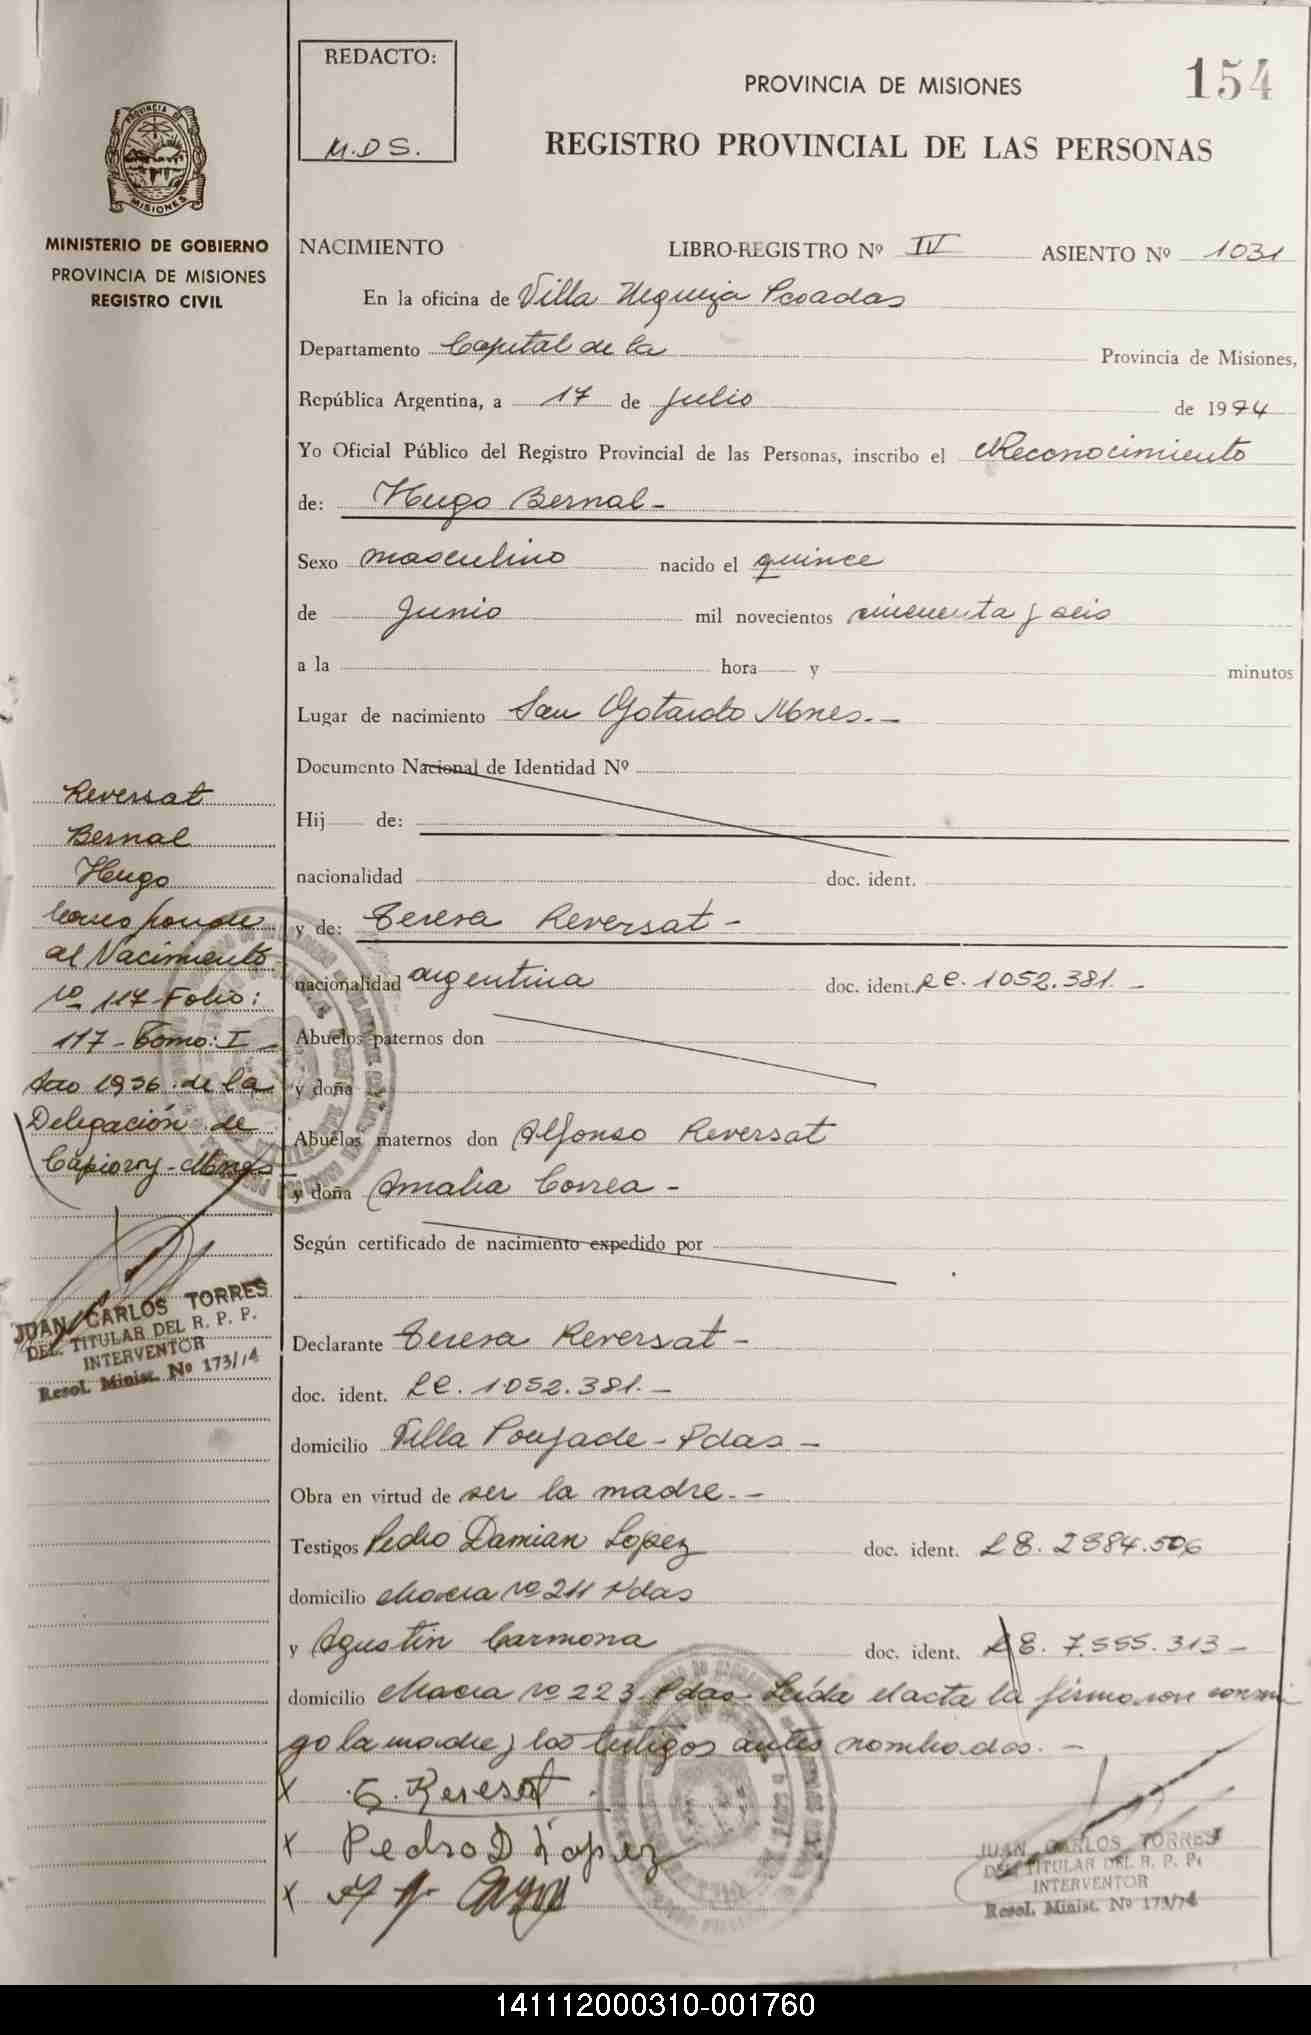 REDACTO:
M.D S.
PROVINCIA DE MISIONES
154
REGISTRO PROVINCIAL DE LAS PERSONAS
PROVINCIA DE
MISIONES
MINISTERIO DE GOBIERNO
PROVINCIA DE MISIONES
REGISTRO CIVIL
NACIMIENTO LIBRO-REGISTRO Nº IV ASIENTO Nº 1031
En la oficina de Villa Urquiza Posadas
Departamento Capital de la Provincia de Misiones,
República Argentina, a 17 de Julio de 1974
Yo Oficial Público del Registro Provincial de las Personas, inscribo el Reconocimiento
de: Hugo Bernal-
Sexo masculino nacido el quince
de Junio mil novecientos cincuenta y seis
a la hora y minutos
Lugar de nacimiento San Gotardo Mnes.-
Documento Nacional de Identidad Nº
Hij de:
nacionalidad doc. ident.
y de: Teresa Reversat-
nacionalidad argentina doc. ident. LC. 1052.381.-
Abuelos paternos don
y doña
Abuelos maternos don Alfonso Reversat
y doña Amalia Correa-
Según certificado de nacimiento expedido por
Declarante Teresa Reversat-
doc. ident. LC. 1.052.381.-
domicilio Villa Poujade-Pdas-
Obra en virtud de ser la madre.-
Testigos Pedro Damian Lopez doc. ident. LE. 2984.506
domicilio Chacra nº 24 Pdas
y Agustin Carmona doc. ident. LE. 7.555.313-
domicilio Chacra nº 223 Pdas- Leida el acta la firmaron conmi
go la madre y los testigos antes nombrados.-
X T. Reversat
X Pedro D Lopez
X
JUAN CARLOS TORRES
DEL. TITULAR DEL R. P. P.
INTERVENTOR
Resol. Minist. Nº 173/74
Reversat
Bernal
Hugo
Corresponde
al Nacimiento
nº 117-Folio:
117-Tomo: I
Año 1956 de la
Delegación de
Capiovy-Mnes
JUAN CARLOS TORRES
DEL. TITULAR DEL R. P. P.
INTERVENTOR
Resol. Minist. Nº 173/74
141112000310-001760